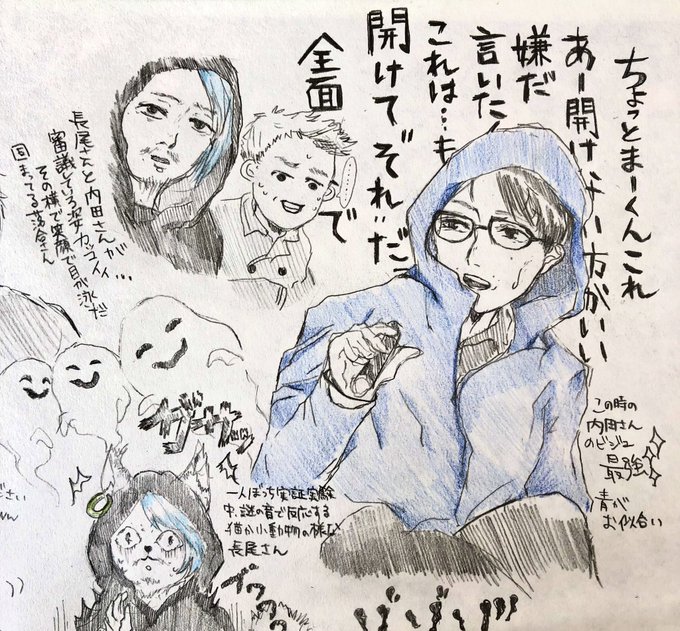 ちょっとまーくんこれ
あー開けない方がいい
嫌だ
言いたく
これは…も
開けて"それ"だっ
全面
で
………
長尾さんと内田さんが
審議している姿カッコイイ…
その横で笑顔で目が泳だ
固まってる落合さん
この時の
内田さん
のビジュ
最強
青が
お似合い
ガサガサッ
一人ぼっち実証実験
中、謎の音で反応する
猫か小動物の様な
長尾さん
ださい
ww